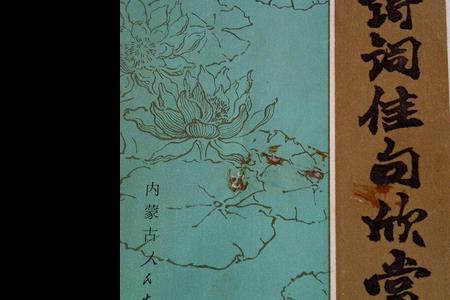 诗词佳句欣赏
内蒙古人民